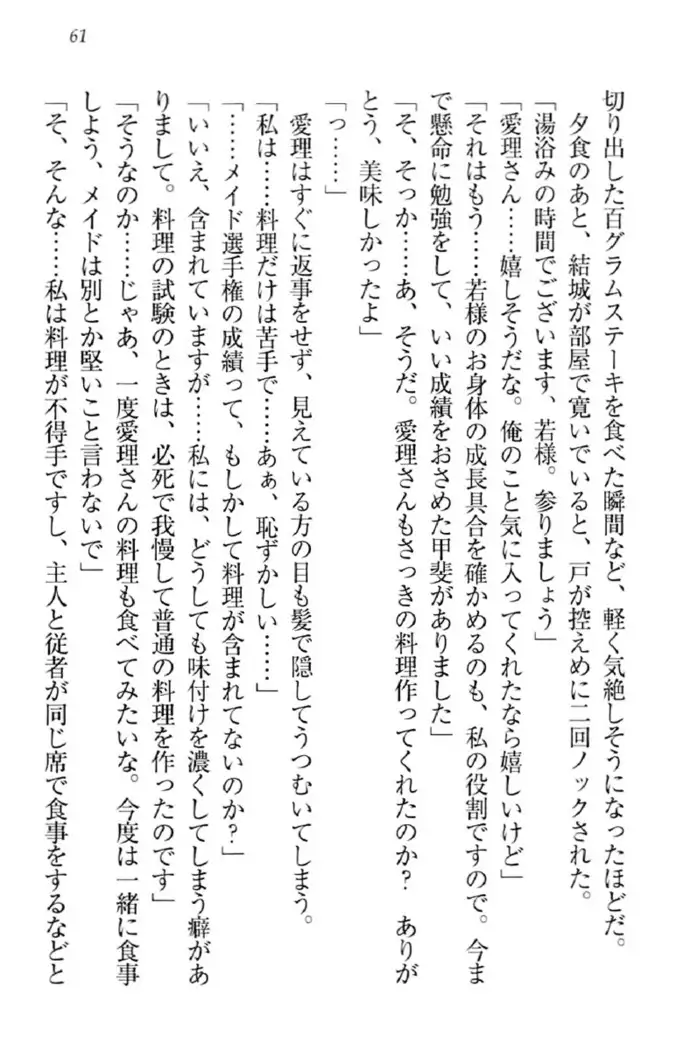 61
切り出した百グラムステーキを食べた瞬間など、軽く気絶しそうになったほどだ。
夕食のあと、結城が部屋で寛いでいると、戸が控えめに二回ノックされた。
「湯浴みの時間でございます、若様。参りましょう」
「愛理さん……嬉しそうだな。俺のこと気に入ってくれたなら嬉しいけど」
「それはもう……若様のお身体の成長具合を確かめるのも、私の役割ですので。今ま
で懸命に勉強をして、いい成績をおさめた甲斐がありました」
「そ、そっか……あ、そうだ。愛理さんもさっきの料理作ってくれたのか？　ありが
とう、美味しかったよ」
「っ……」
愛理はすぐに返事をせず、見えている方の目も髪で隠してうつむいてしまう。
「私は……料理だけは苦手で……あぁ、恥ずかしい……」
「……メイド選手権の成績って、もしかして料理が含まれてないのか？」
「いいえ、含まれていますが……私には、どうしても味付けを濃くしてしまう癖があ
りまして。料理の試験のときは、必死で我慢して普通の料理を作ったのです」
「そうなのか……じゃあ、一度愛理さんの料理も食べてみたいな。今度は一緒に食事
しよう、メイドは別とか堅いこと言わないで」
「そ、そんな……私は料理が不得手ですし、主人と従者が同じ席で食事をするなどと